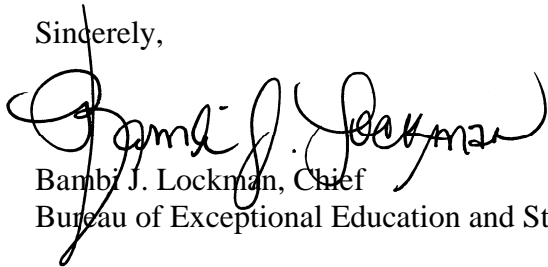 Sincerely,
Bambi J. Lockman
Bambi J. Lockman, Chief
Bureau of Exceptional Education and St